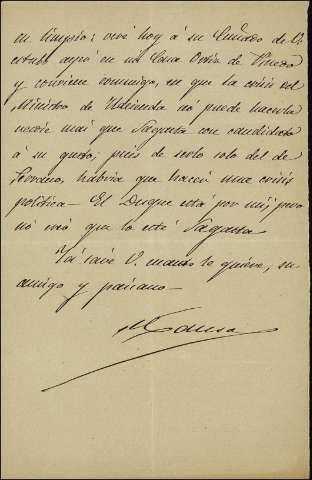 en limpio: viví hoy á su Cuñado de V.
estubo aquí en su Casa Ortiz de Pinedo
y conviene conmigo, en que la crisis del
Ministro de Hacienda no puede hacerla
nadie mas que Sagasta con candidato
á su gusto; pues de serlo solo del de
Serrano, habria que hacer una crisis
politica — El Duque está por mí; pero
no créa que lo esté Sagasta
Ya save V. cuanto le quiere, su
amigo y paisano —